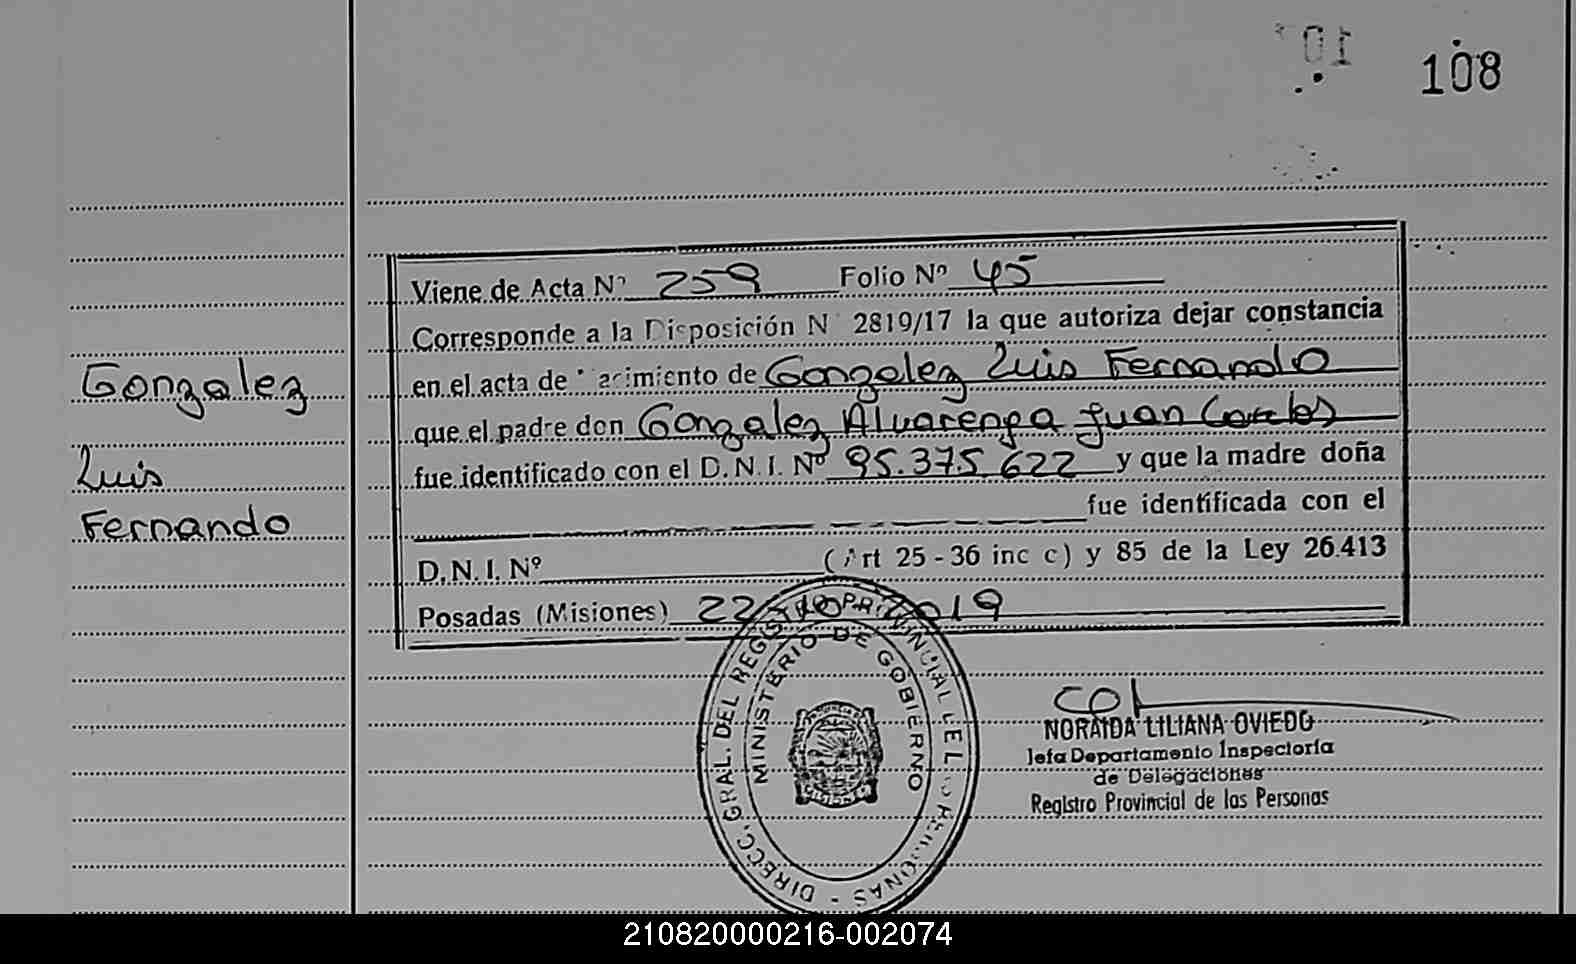 108
Gonzalez
Luis
Fernando
Viene de Acta Nº 259 Folio Nº 45
Corresponde a la Disposición N 2819/17 la que autoriza dejar constancia
en el acta de nacimiento de Gonzalez Luis Fernando
que el padre don Gonzalez Alvarenga Juan Carlos
fue identificado con el D.N.I. Nº 95.375.622 y que la madre doña
fue identificada con el
D.N.I. Nº (Art 25 - 36 inc c) y 85 de la Ley 26.413
Posadas (Misiones) 22 10 2019
DIRECC. GRAL. DEL REGISTRO PROVINCIAL DE LAS PERSONAS -
MINISTERIO DE GOBIERNO
MISIONES
NORAIDA LILIANA OVIEDO
Jefa Departamento Inspectoría
de Delegaciones
Registro Provincial de las Personas
210820000216-002074